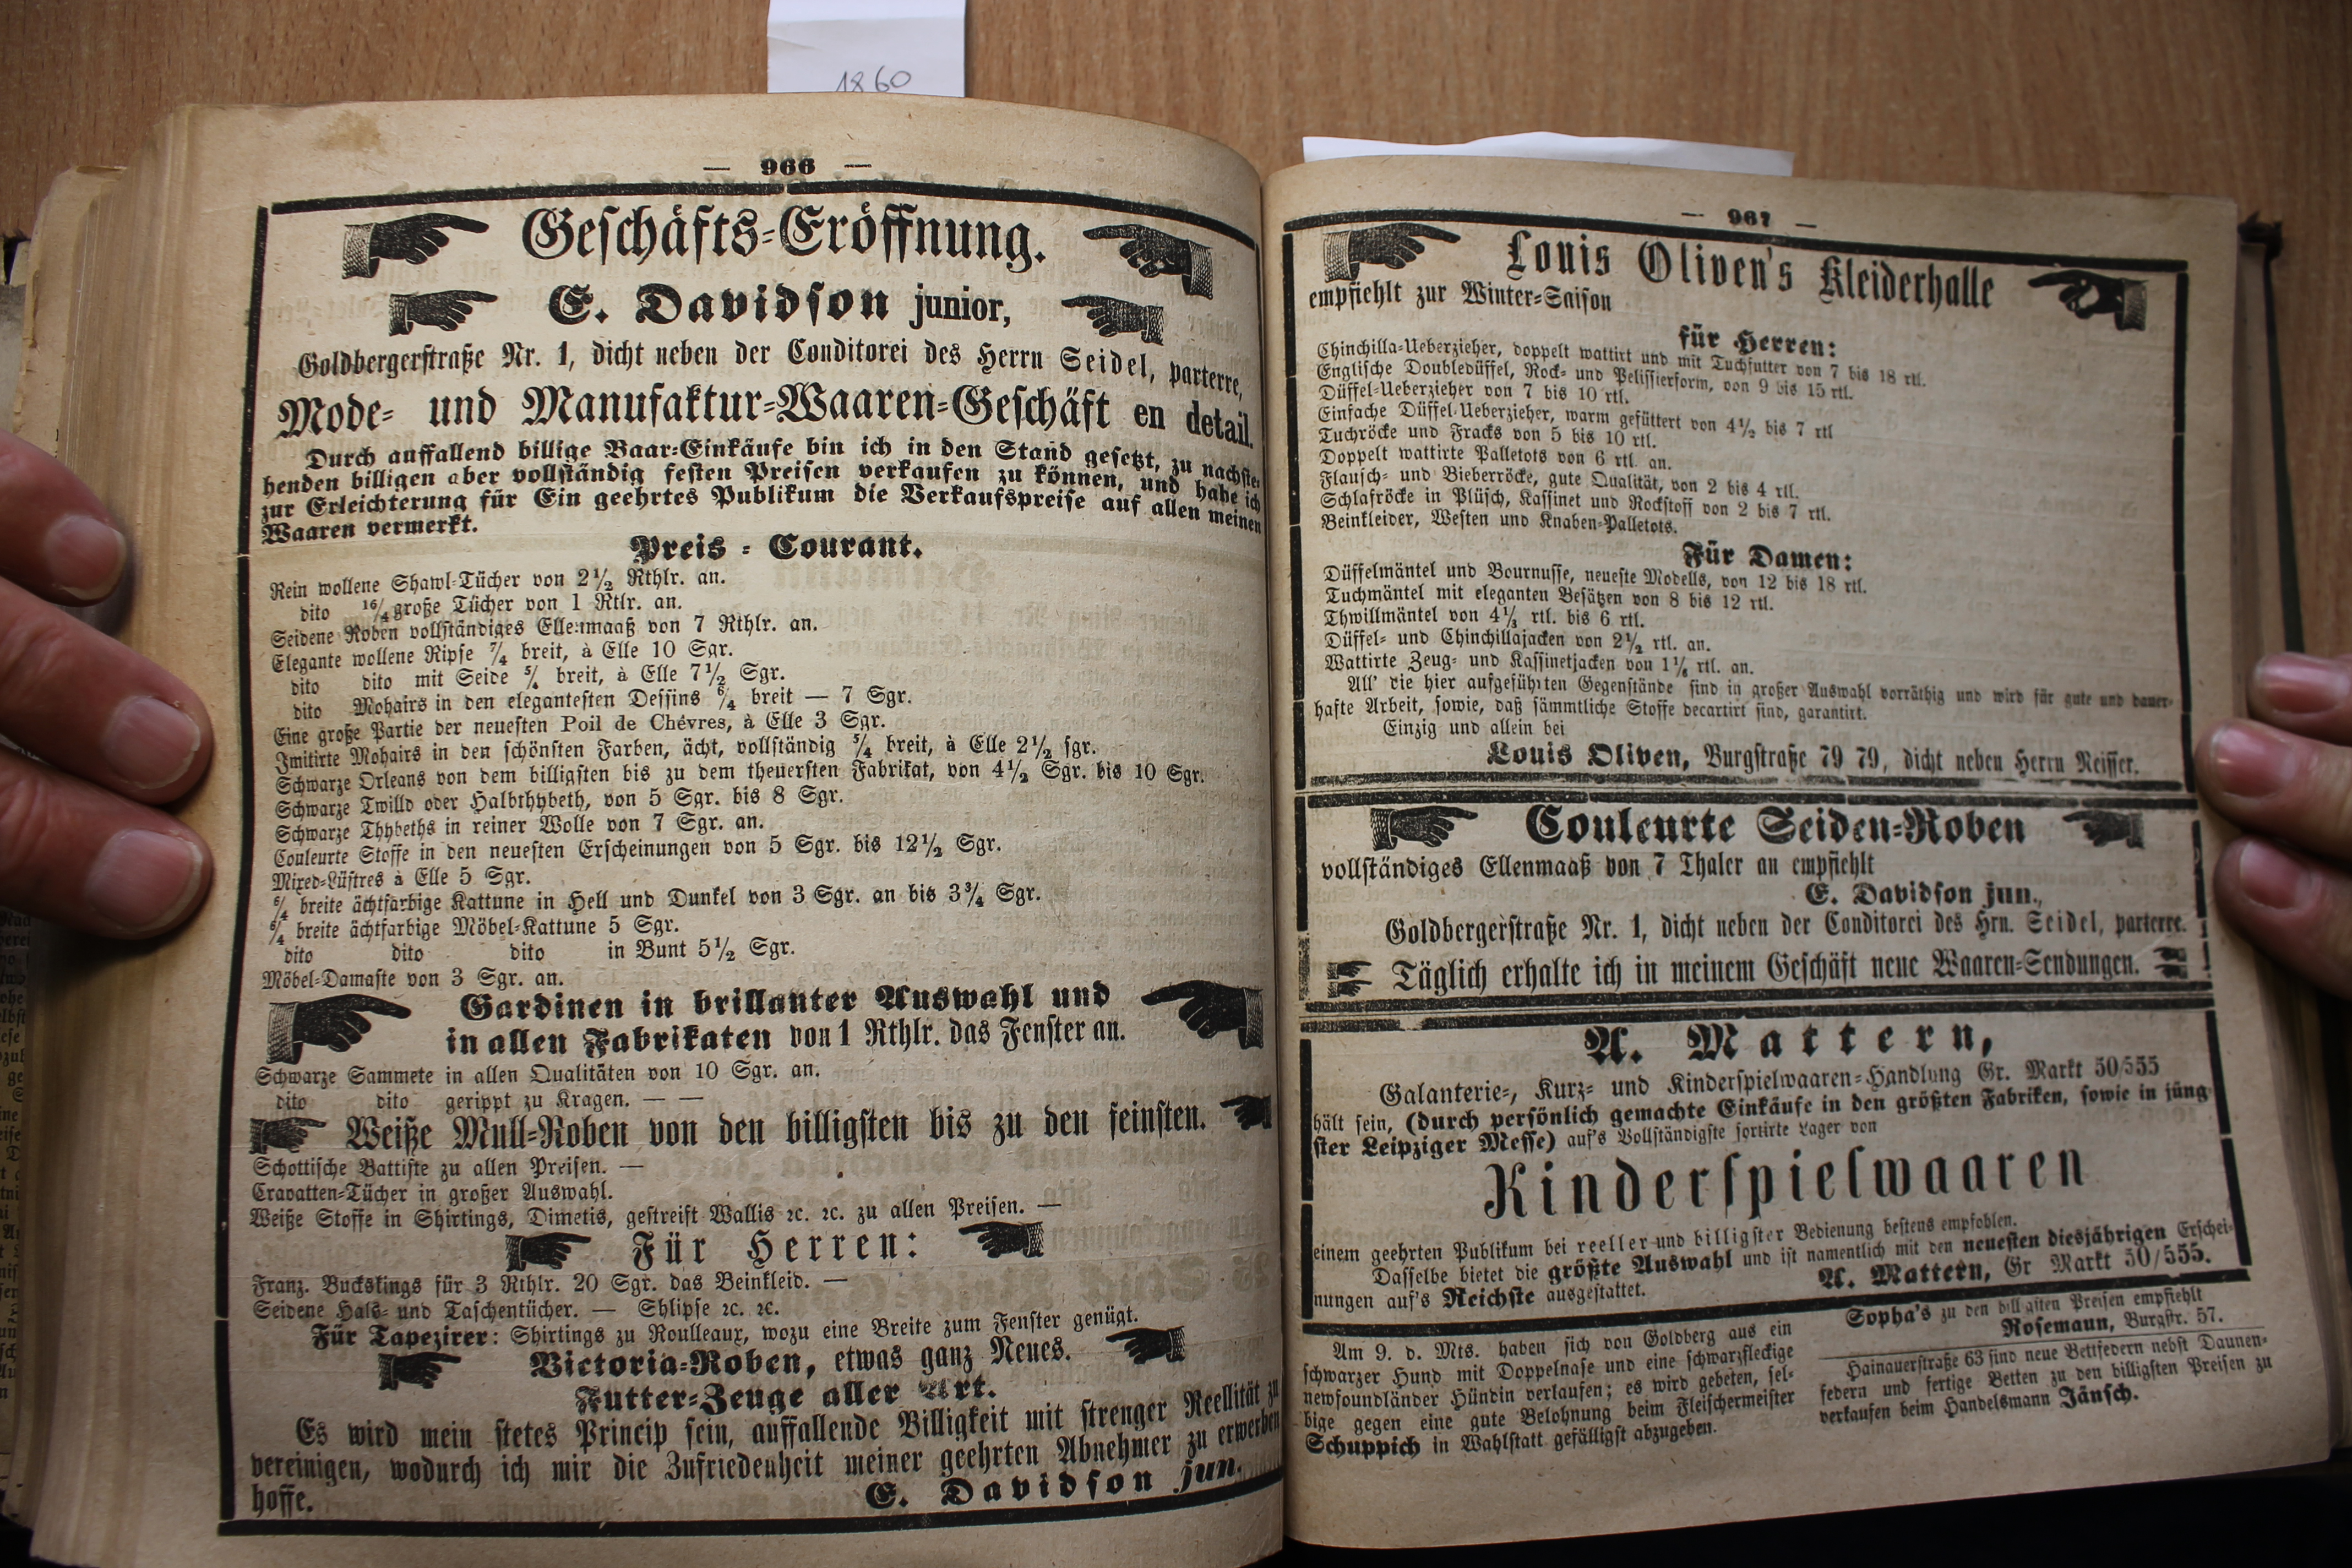 1860
— 966 —
Geschäfts-Eröffnung.
E. Davidson junior,
Goldbergerstraße Nr. 1, dicht neben der Conditorei des Herrn Seidel, parterre,
Mode- und Manufaktur-Waaren-Geschäft en detail.
Durch auffallend billige Baar-Einkäufe bin ich in den Stand gesetzt, zu nachste-
henden billigen aber vollständig festen Preisen verkaufen zu können, und habe ich
zur Erleichterung für Ein geehrtes Publikum die Verkaufspreise auf allen meinen
Waaren vermerkt.
Preis - Courant.
Rein wollene Shawl-Tücher von 2½ Rthlr. an.
dito 16/4 große Tücher von 1 Rtlr. an.
Seidene Roben vollständiges Ellenmaaß von 7 Rthlr. an.
Elegante wollene Ripse 7/4 breit, à Elle 10 Sgr.
dito dito mit Seide 5/4 breit, à Elle 7½ Sgr.
dito Mohairs in den elegantesten Dessins 6/4 breit — 7 Sgr.
Eine große Partie der neuesten Poil de Chévres, à Elle 3 Sgr.
Imitirte Mohairs in den schönsten Farben, ächt, vollständig 5/4 breit, à Elle 2½ sgr.
Schwarze Orleans von dem billigsten bis zu dem theuersten Fabrikat, von 4½ Sgr. bis 10 Sgr.
Schwarze Twilld oder Halbthybeth, von 5 Sgr. bis 8 Sgr.
Schwarze Thybeths in reiner Wolle von 7 Sgr. an.
Couleurte Stoffe in den neuesten Erscheinungen von 5 Sgr. bis 12½ Sgr.
Mixed-Lüstres à Elle 5 Sgr.
6/4 breite ächtfarbige Kattune in Hell und Dunkel von 3 Sgr. an bis 3¾ Sgr.
6/4 breite ächtfarbige Möbel-Kattune 5 Sgr.
dito dito dito in Bunt 5½ Sgr.
Möbel-Damaste von 3 Sgr. an.
Gardinen in brillanter Auswahl und
in allen Fabrikaten von 1 Rthlr. das Fenster an.
Schwarze Sammete in allen Qualitäten von 10 Sgr. an.
dito dito gerippt zu Kragen. — —
Weiße Mull-Roben von den billigsten bis zu den feinsten.
Schottische Battiste zu allen Preisen. —
Cravatten-Tücher in großer Auswahl.
Weiße Stoffe in Shirtings, Dimetis, gestreift Wallis ꝛc. ꝛc. zu allen Preisen. —
Für Herren:
Franz. Buckskings für 3 Rthlr. 20 Sgr. das Beinkleid. —
Seidene Hals- und Taschentücher. — Shlipse ꝛc. ꝛc.
Für Tapezirer: Shirtings zu Roulleaux, wozu eine Breite zum Fenster genügt.
Victoria-Roben, etwas ganz Neues.
Futter-Zeuge aller Art.
Es wird mein stetes Princip sein, auffallende Billigkeit mit strenger Reellität zu
vereinigen, wodurch ich mir die Zufriedenheit meiner geehrten Abnehmer zu erwerben
hoffe.
E. Davidson jun.
— 967 —
Louis Oliven's Kleiderhalle
empfiehlt zur Winter-Saison
für Herren:
Chinchilla-Ueberzieher, doppelt wattirt und mit Tuchfutter von 7 bis 18 rtl.
Englische Doubledüffel, Rock- und Pelissierform, von 9 bis 15 rtl.
Düffel-Ueberzieher von 7 bis 10 rtl.
Einfache Düffel-Ueberzieher, warm gefüttert von 4½ bis 7 rtl
Tuchröcke und Fracks von 5 bis 10 rtl.
Doppelt wattirte Palletots von 6 rtl. an.
Flausch- und Bieberröcke, gute Qualität, von 2 bis 4 rtl.
Schlafröcke in Plüsch, Kassinet und Rockstoff von 2 bis 7 rtl.
Beinkleider, Westen und Knaben-Palletots.
Für Damen:
Düffelmäntel und Bournusse, neueste Modells, von 12 bis 18 rtl.
Tuchmäntel mit eleganten Besätzen von 8 bis 12 rtl.
Thwillmäntel von 4⅓ rtl. bis 6 rtl.
Düffel- und Chinchillajacken von 2½ rtl. an.
Wattirte Zeug- und Kassinetjacken von 1⅙ rtl. an.
All' die hier aufgeführten Gegenstände sind in großer Auswahl vorräthig und wird für gute und dauer-
hafte Arbeit, sowie, daß sämmtliche Stoffe decartirt sind, garantirt.
Einzig und allein bei
Louis Oliven, Burgstraße 79 79, dicht neben Herrn Neisser.
Couleurte Seiden-Roben
vollständiges Ellenmaaß von 7 Thaler an empfiehlt
E. Davidson jun.,
Goldbergerstraße Nr. 1, dicht neben der Conditorei des Hrn. Seidel, parterre.
Täglich erhalte ich in meinem Geschäft neue Waaren-Sendungen.
A. Mattern,
Galanterie-, Kurz- und Kinderspielwaaren-Handlung Gr. Markt 50/555
hält sein, (durch persönlich gemachte Einkäufe in den größten Fabriken, sowie in jüng-
ster Leipziger Messe) auf's Vollständigste sortirte Lager von
Kinderspielwaaren
einem geehrten Publikum bei reeller und billigster Bedienung bestens empfohlen.
Dasselbe bietet die größte Auswahl und ist namentlich mit den neuesten diesjährigen Erschei-
nungen auf's Reichste ausgestattet.
A. Mattern, Gr Markt 50/555.
Am 9. d. Mts. haben sich von Goldberg aus ein
schwarzer Hund mit Doppelnase und eine schwarzfleckige
newfoundländer Hündin verlaufen; es wird gebeten, sel-
bige gegen eine gute Belohnung beim Fleischermeister
Schuppich in Wahlstatt gefälligst abzugeben.
Sopha's zu den billigsten Preisen empfiehlt
Rosemann, Burgstr. 57.
Hainauerstraße 63 sind neue Bettfedern nebst Daunen-
federn und fertige Betten zu den billigsten Preisen zu
verkaufen beim Handelsmann Jänsch.